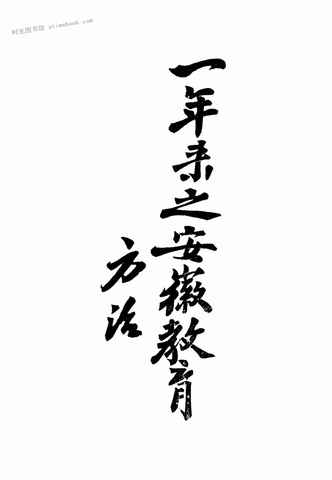 时光图书馆 etimebook.com
一年来之安徽教育
方治